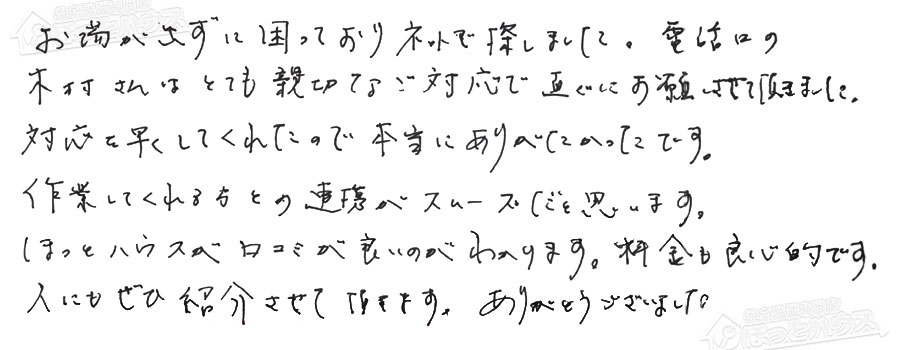 お湯が出ずに困っておりネットで探しました。電話口の
木村さんはとても親切なご対応で直ぐにお願いさせて頂きました。
対応も早くしてくれたので本当にありがたかったです。
作業してくれる方との連携がスムーズだと思います。
ほっとハウスが口コミが良いのがわかります。料金も良心的です。
人にもぜひ紹介させて頂きます。ありがとうございました
ほっとハウス